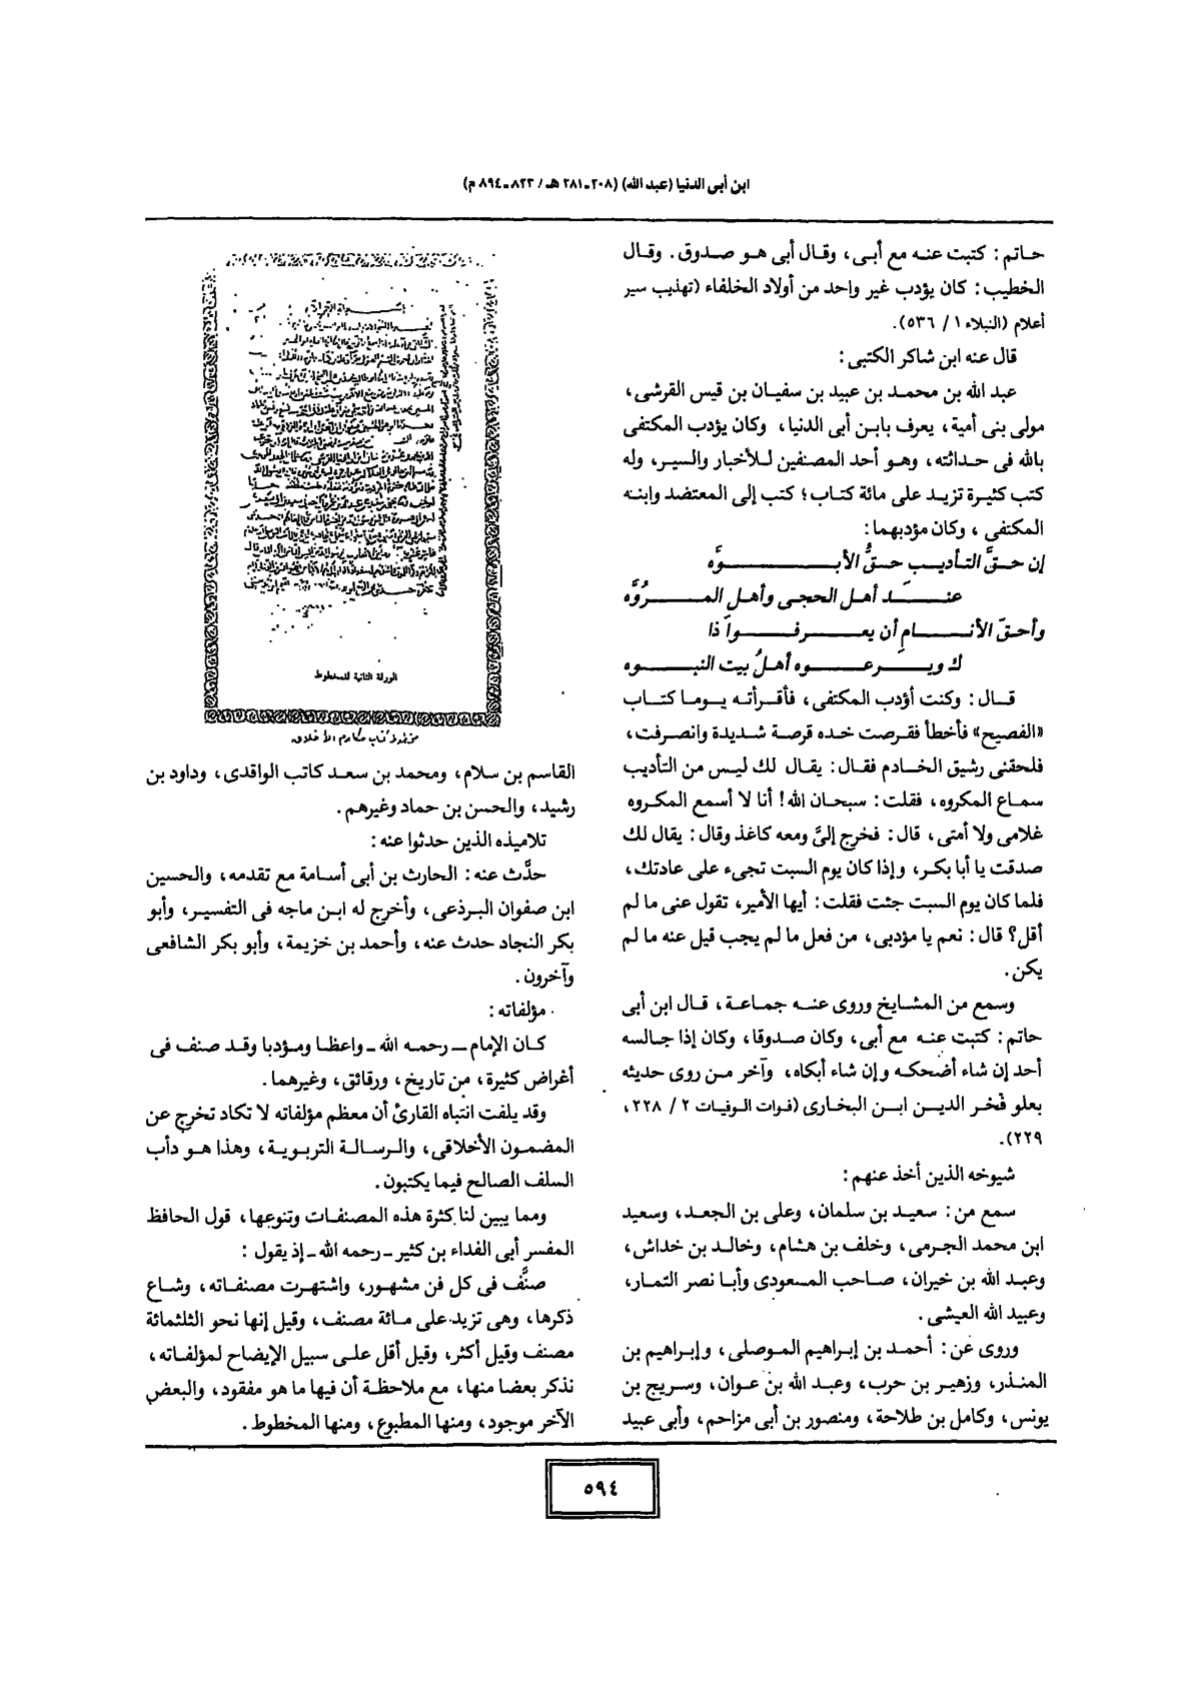 ابن أبى الدنيا (عبد الله) (٢٠٨ـ٢٨١ هـ / ٨٢٣ـ٨٩٤ م)
حاتم: كتبت عنه مع أبى، وقال أبى هو صدوق. وقال
الخطيب: كان يؤدب غير واحد من أولاد الخلفاء (تهذيب سير
أعلام (النبلاء ١ / ٥٣٦).
قال عنه ابن شاكر الكتبى:
عبد الله بن محمد بن عبيد بن سفيان بن قيس القرشى،
مولى بنى أمية، يعرف بابن أبى الدنيا، وكان يؤدب المكتفى
بالله فى حداثته، وهو أحد المصنفين للأخبار والسير، وله
كتب كثيرة تزيد على مائة كتاب؛ كتب إلى المعتضد وابنه
المكتفى، وكان مؤدبهما:
إن حقَّ التأديب حقُّ الأبوَّه
عند أهل الحجى وأهل المروَّه
وأحقّ الأنامِ أن يعرفوا ذا
ك ويرعوه أهلُ بيت النبوه
قال: وكنت أؤدب المكتفى، فأقرأته يوما كتاب
«الفصيح» فأخطأ فقرصت خده قرصة شديدة وانصرفت،
فلحقنى رشيق الخادم فقال: يقال لك ليس من التأديب
سماع المكروه، فقلت: سبحان الله! أنا لا أسمع المكروه
غلامى ولا أمتى، قال: فخرج إلىَّ ومعه كاغذ وقال: يقال لك
صدقت يا أبا بكر، وإذا كان يوم السبت تجىء على عادتك،
فلما كان يوم السبت جئت فقلت: أيها الأمير، تقول عنى ما لم
أقل؟ قال: نعم يا مؤدبى، من فعل ما لم يجب قيل عنه ما لم
يكن.
وسمع من المشايخ وروى عنه جماعة، قال ابن أبى
حاتم: كتبت عنه مع أبى، وكان صدوقا، وكان إذا جالسه
أحد إن شاء أضحكه وإن شاء أبكاه، وآخر من روى حديثه
بعلو فخر الدين ابن البخارى (فوات الوفيات ٢ / ٢٢٨،
٢٢٩).
شيوخه الذين أخذ عنهم:
سمع من: سعيد بن سلمان، وعلى بن الجعد، وسعيد
ابن محمد الجرمى، وخلف بن هشام، وخالد بن خداش،
وعبد الله بن خيران، صاحب المسعودى وأبا نصر التمار،
وعبيد الله العيشى.
وروى عن: أحمد بن إبراهيم الموصلى، وإبراهيم بن
المنذر، وزهير بن حرب، وعبد الله بن عوان، وسريج بن
يونس، وكامل بن طلاحة، ومنصور بن أبى مزاحم، وأبى عبيد
الورقة الثانية للمخطوط
من مخطوط كتاب مكارم الأخلاق
القاسم بن سلام، ومحمد بن سعد كاتب الواقدى، وداود بن
رشيد، والحسن بن حماد وغيرهم.
تلاميذه الذين حدثوا عنه:
حدَّث عنه: الحارث بن أبى أسامة مع تقدمه، والحسين
ابن صفوان البرذعى، وأخرج له ابن ماجه فى التفسير، وأبو
بكر النجاد حدث عنه، وأحمد بن خزيمة، وأبو بكر الشافعى
وآخرون.
مؤلفاته:
كان الإمام ـ رحمه الله ـ واعظا ومؤدبا وقد صنف فى
أغراض كثيرة، من تاريخ، ورقائق، وغيرهما.
وقد يلفت انتباه القارئ أن معظم مؤلفاته لا تكاد تخرج عن
المضمون الأخلاقى، والرسالة التربوية، وهذا هو دأب
السلف الصالح فيما يكتبون.
ومما يبين لنا كثرة هذه المصنفات وتنوعها، قول الحافظ
المفسر أبى الفداء بن كثير ـ رحمه الله ـ إذ يقول:
صنَّف فى كل فن مشهور، واشتهرت مصنفاته، وشاع
ذكرها، وهى تزيد على مائة مصنف، وقيل إنها نحو الثلثمائة
مصنف وقيل أكثر، وقيل أقل على سبيل الإيضاح لمؤلفاته،
نذكر بعضا منها، مع ملاحظة أن فيها ما هو مفقود، والبعض
الآخر موجود، ومنها المطبوع، ومنها المخطوط.
٥٩٤